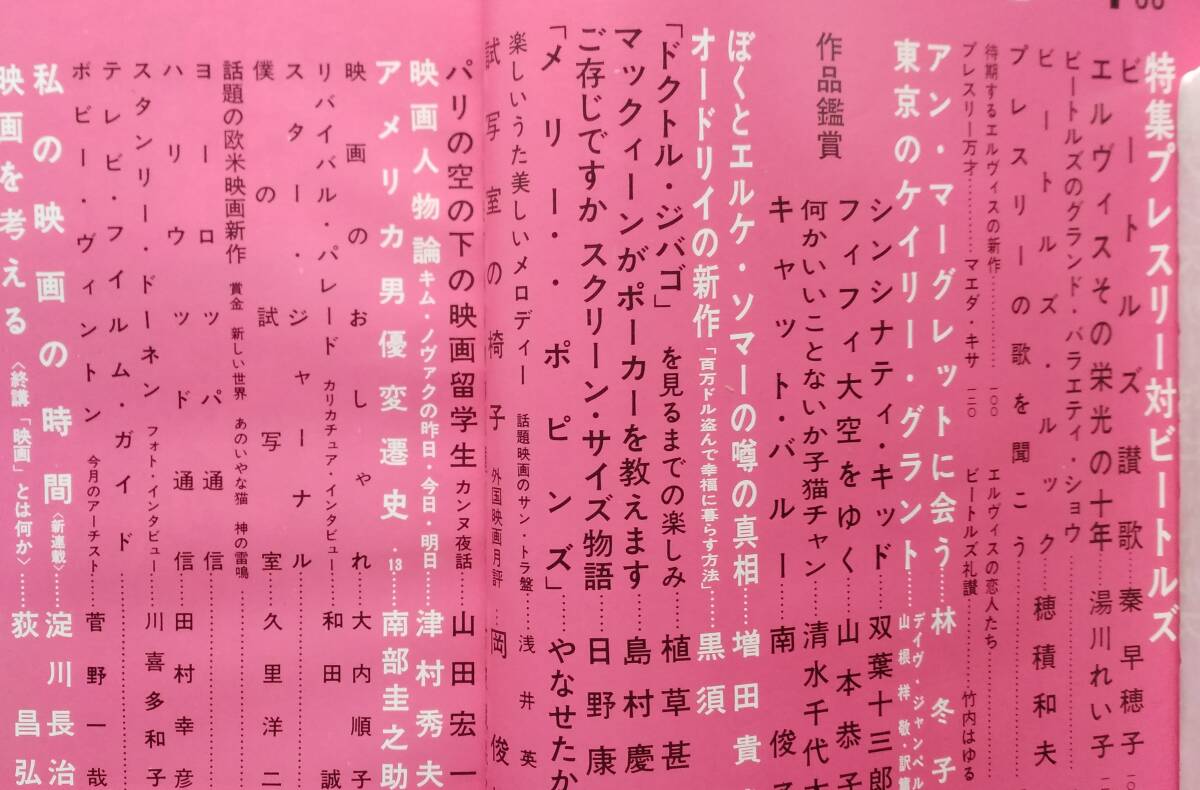 特集プレスリー対ビートルズ
ビートルズ讃歌 秦早穂子
エルヴィスその栄光の十年 湯川れい子
ビートルズのグランド・バラエティ・ショウ
ビートルズ・ルック 穂積和夫
プレスリーの歌を聞こう
待期するエルヴィスの新作 一〇〇
エルヴィスの恋人たち
プレスリー万才 マエダ・キサ 一二〇
ビートルズ礼讃 竹内はゆる
アン・マーグレットに会う 林冬子
東京のケイリー・グラント デイヴ・ジャンペル 山根祥敬・訳
作品鑑賞
シンシナティ・キッド 双葉十三郎
フィフィ大空をゆく 山本恭子
何かいいことないか子猫チャン 清水千代太
キャット・バルー 南俊子
ぼくとエルケ・ソマーの噂の真相 増田貴
オードリイの新作「百万ドル盗んで幸福に暮らす方法」 黒須
「ドクトル・ジバゴ」を見るまでの楽しみ 植草甚
マックィーンがポーカーを教えます 島村慶
ご存じですか スクリーン・サイズ物語 日野康
「メリー・ポピンズ」 やなせたか
楽しいうた美しいメロディー 話題映画のサン・トラ盤 浅井英
試写室の椅子 外国映画月評 岡俊
パリの空の下の映画留学生 カンヌ夜話 山田宏一
映画人物論 キム・ノヴァクの昨日・今日・明日 津村秀夫
アメリカ男優変遷史・13 南部圭之助
映画のおしゃれ 大内順子
リバイバル・パレード カリカチュア・インタビュー 和田誠
スター・ジャーナル
僕の試写室 久里洋二
話題の欧米映画新作 賞金 新しい世界 あのいやな猫 神の雷鳴
ヨーロッパ通信
ハリウッド通信 田村幸彦
スタンリー・ドーネン フォト・インタビュー 川喜多和子
テレビ・フイルム・ガイド
ボビー・ヴィントン 今月のアーチスト 菅野一哉
私の映画の時間〈新連載〉 淀川長治
映画を考える〈終講「映画」とは何か〉 荻昌弘